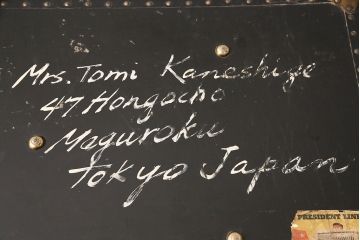 Mrs. Tomi Kaneshige
47. Hongocho
Meguroku
Tokyo Japan
PRESIDENT LINE